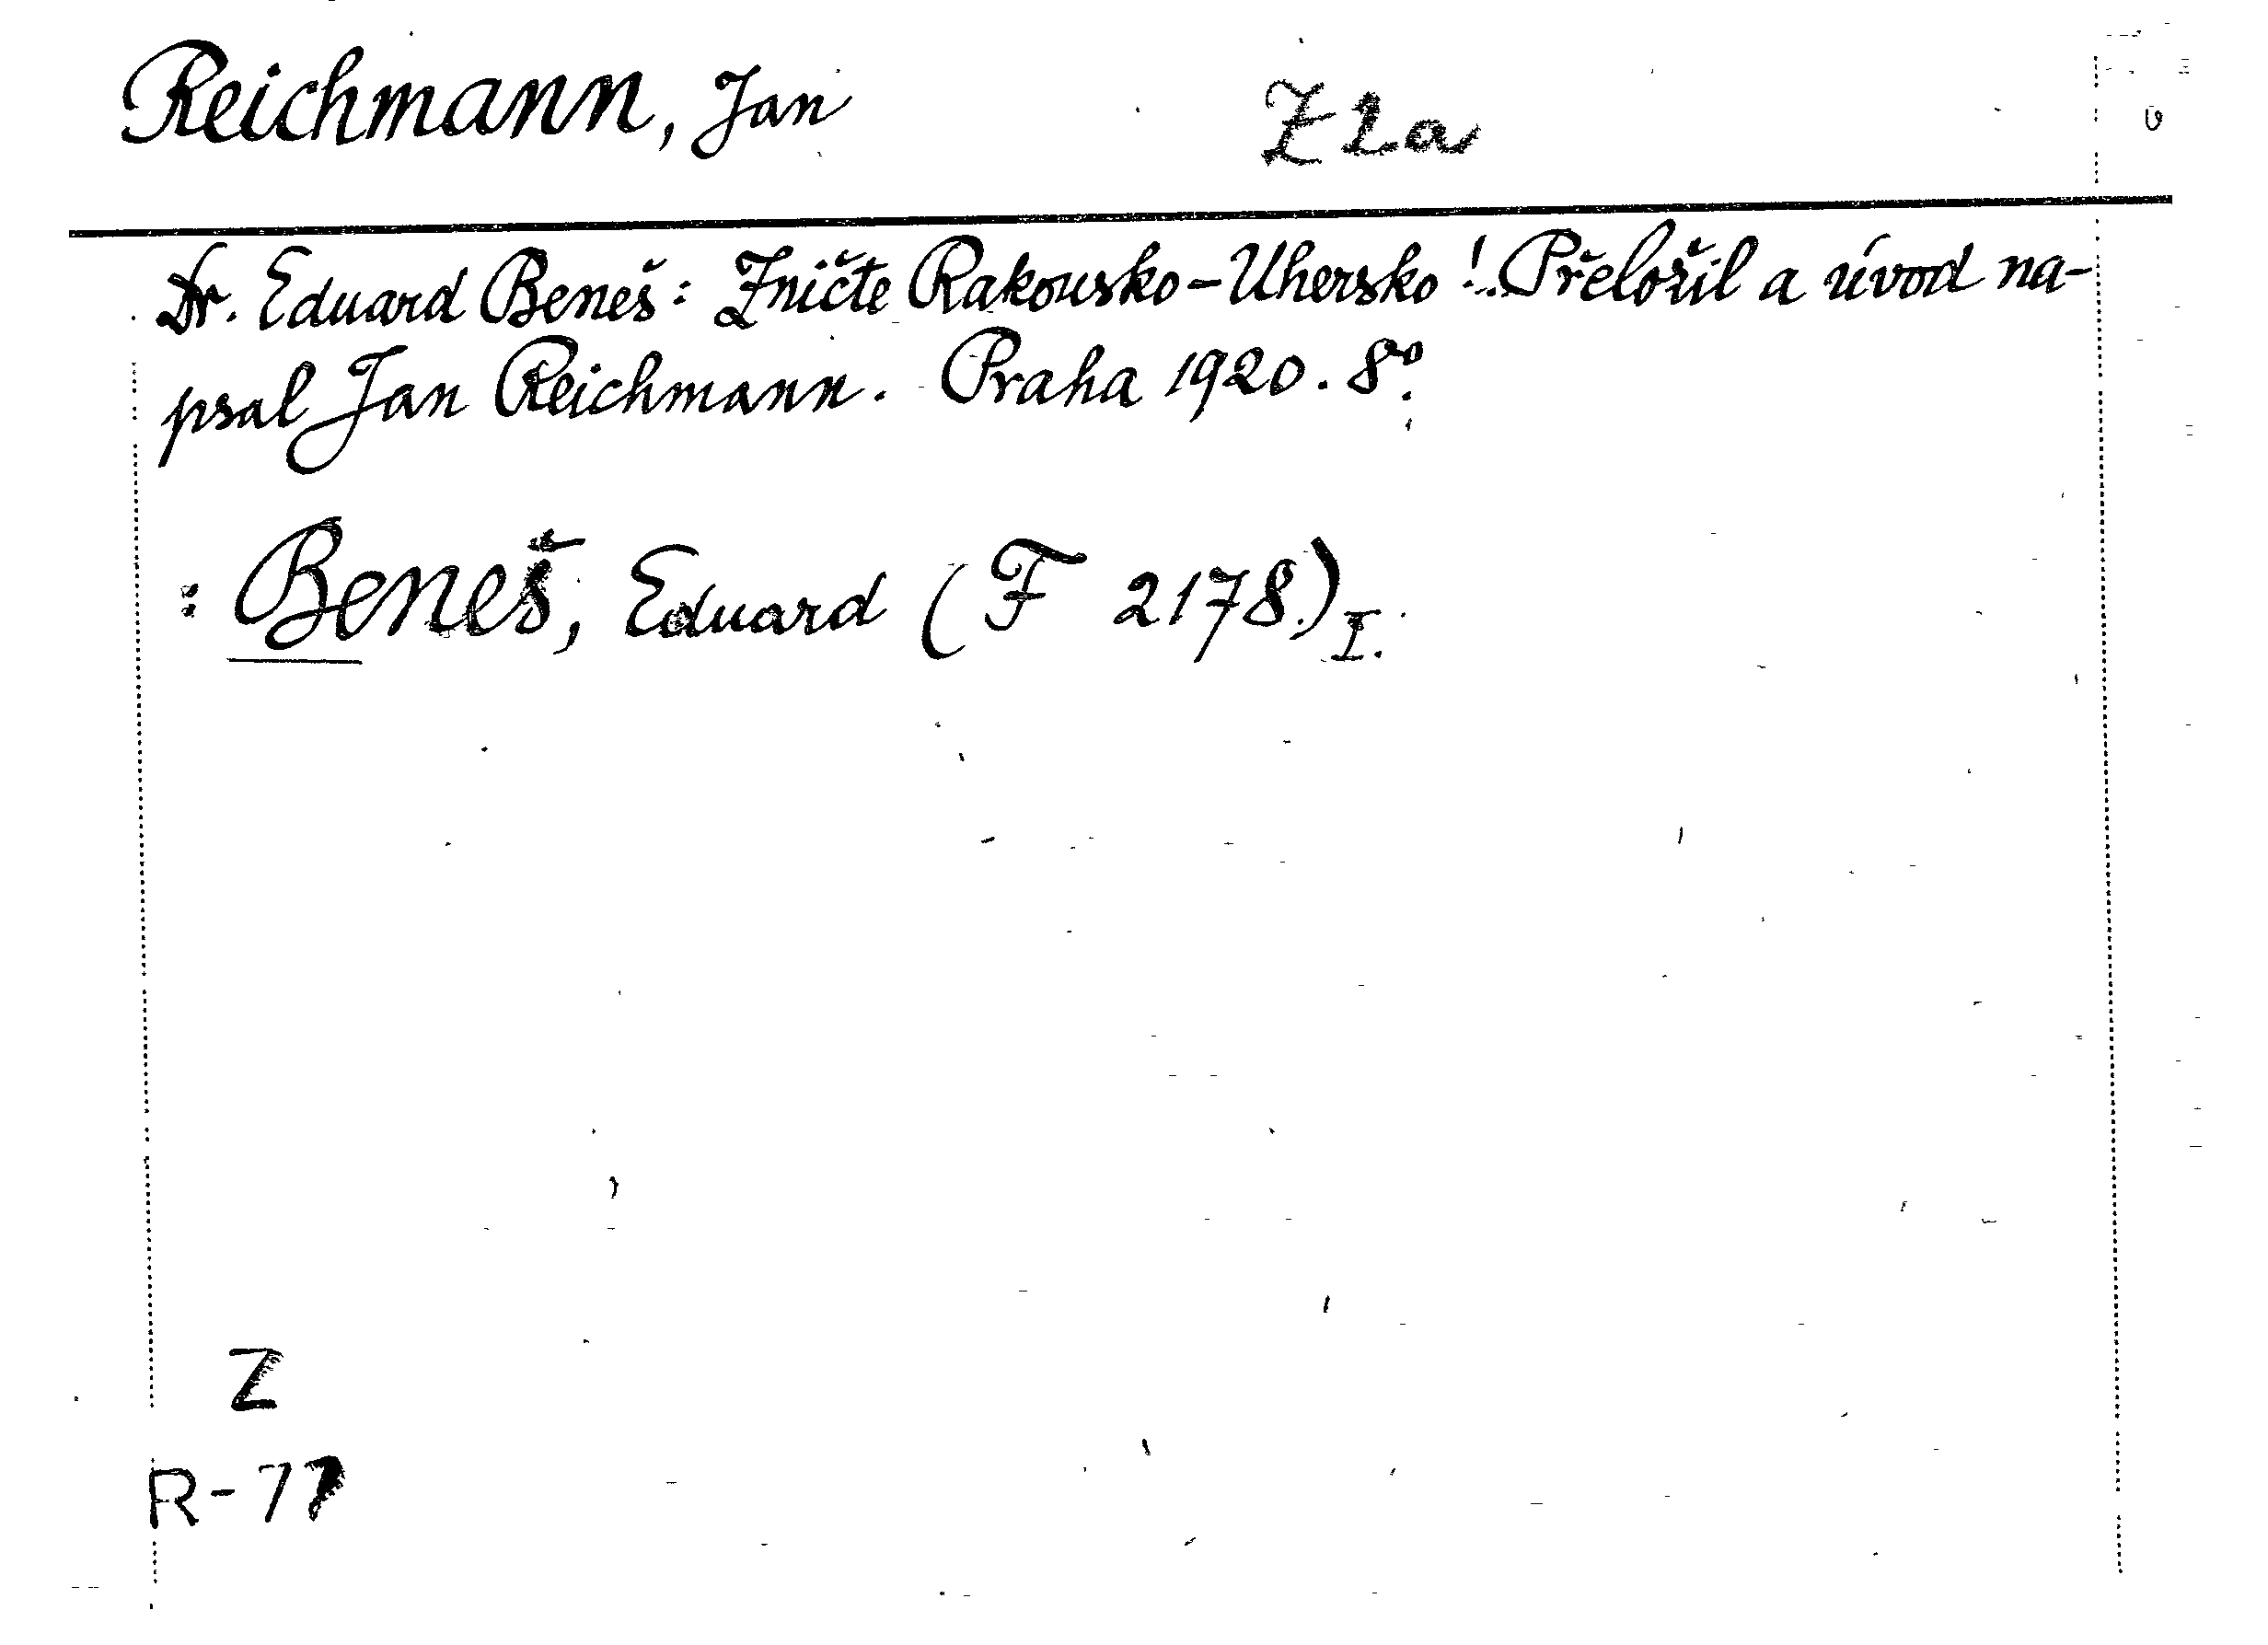 Reichmann, Jan
Z 1a
Dr. Eduard Beneš: Zničte Rakousko-Uhersko! Přeložil a úvod na-
psal Jan Reichmann. Praha 1920. 8°.
: Beneš, Eduard (F 2178.) I.
Z
R-77